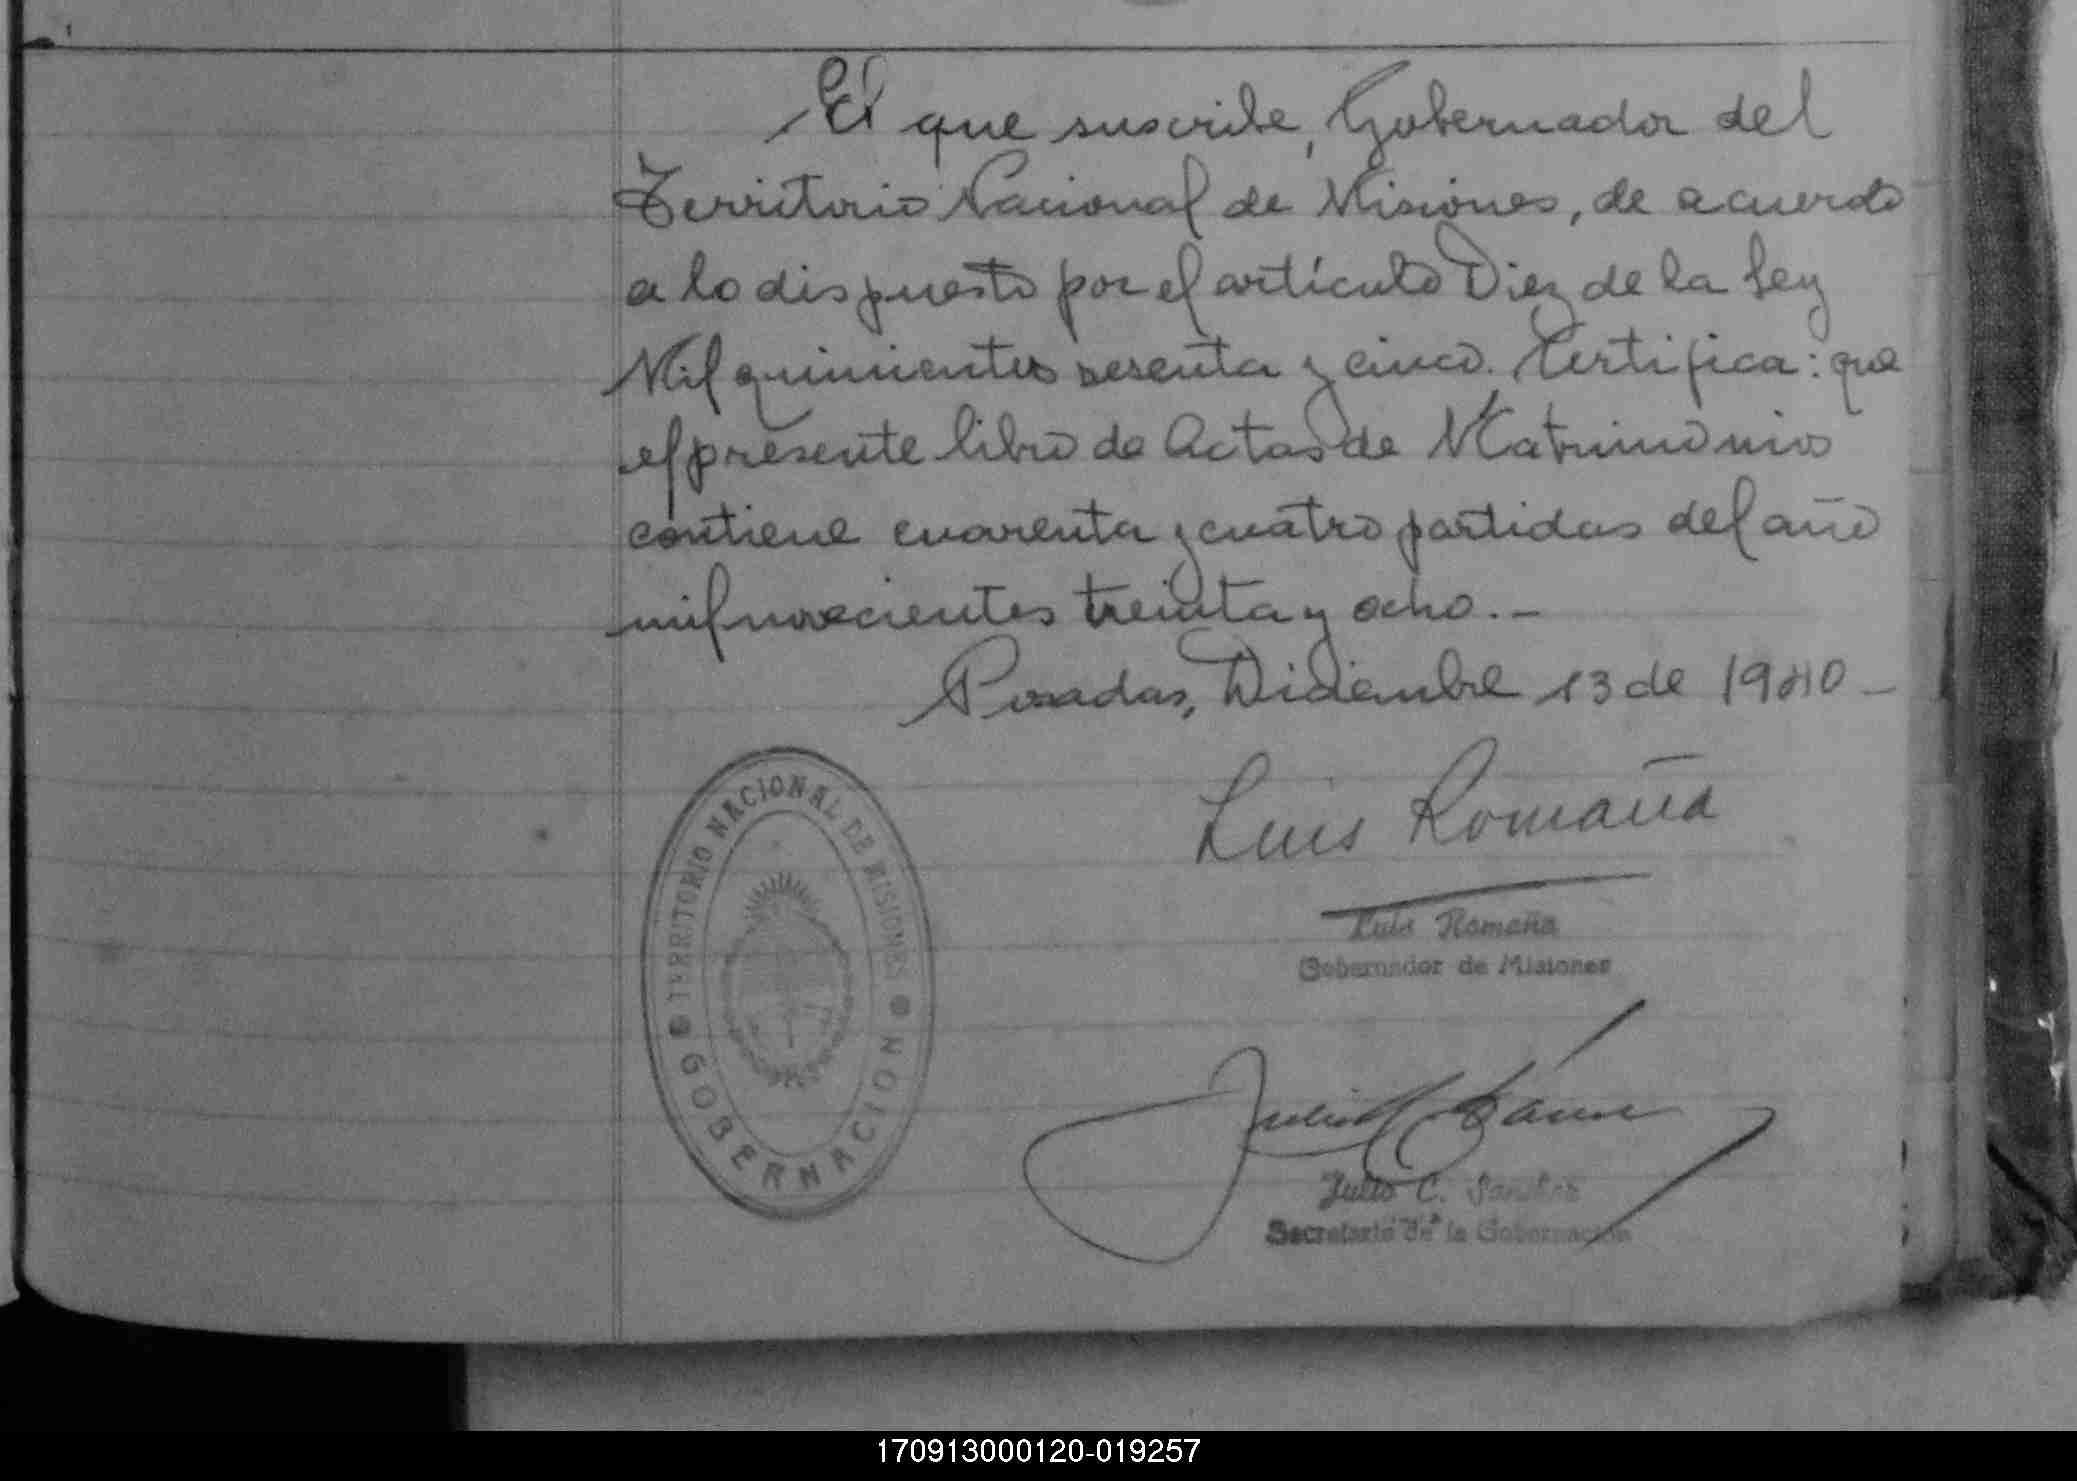 El que suscribe, Gobernador del
Territorio Nacional de Misiones, de acuerdo
a lo dispuesto por el artículo Diez de la Ley
Mil quinientos sesenta y cinco. Certifica: que
el presente libro de Actas de Matrimonios
contiene cuarenta y cuatro partidas del año
mil novecientos treinta y ocho.-
Posadas, Diciembre 13 de 1940-
TERRITORIO NACIONAL DE MISIONES
GOBERNACION
Luis Romaña
Luis Romaña
Gobernador de Misiones
Julio C.
Secretario de la Gobernación
170913000120-019257